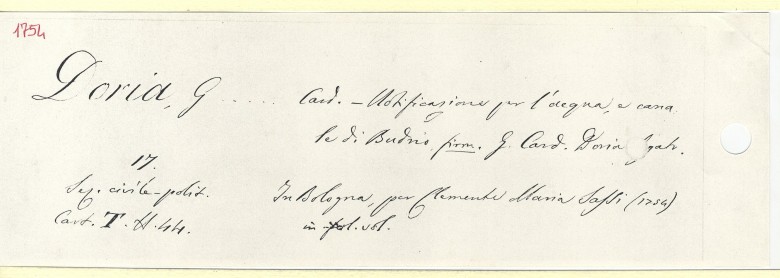 1754
Doria, G ..... Card. - Notificazione per l'acqua, e cana
le di Budrio, firm. G. Card. Doria
17.
Sez. civile-polit.
Cart. T. H. 44.
In Bologna, per Clemente Maria Sassi (1754)
in fol. vol.